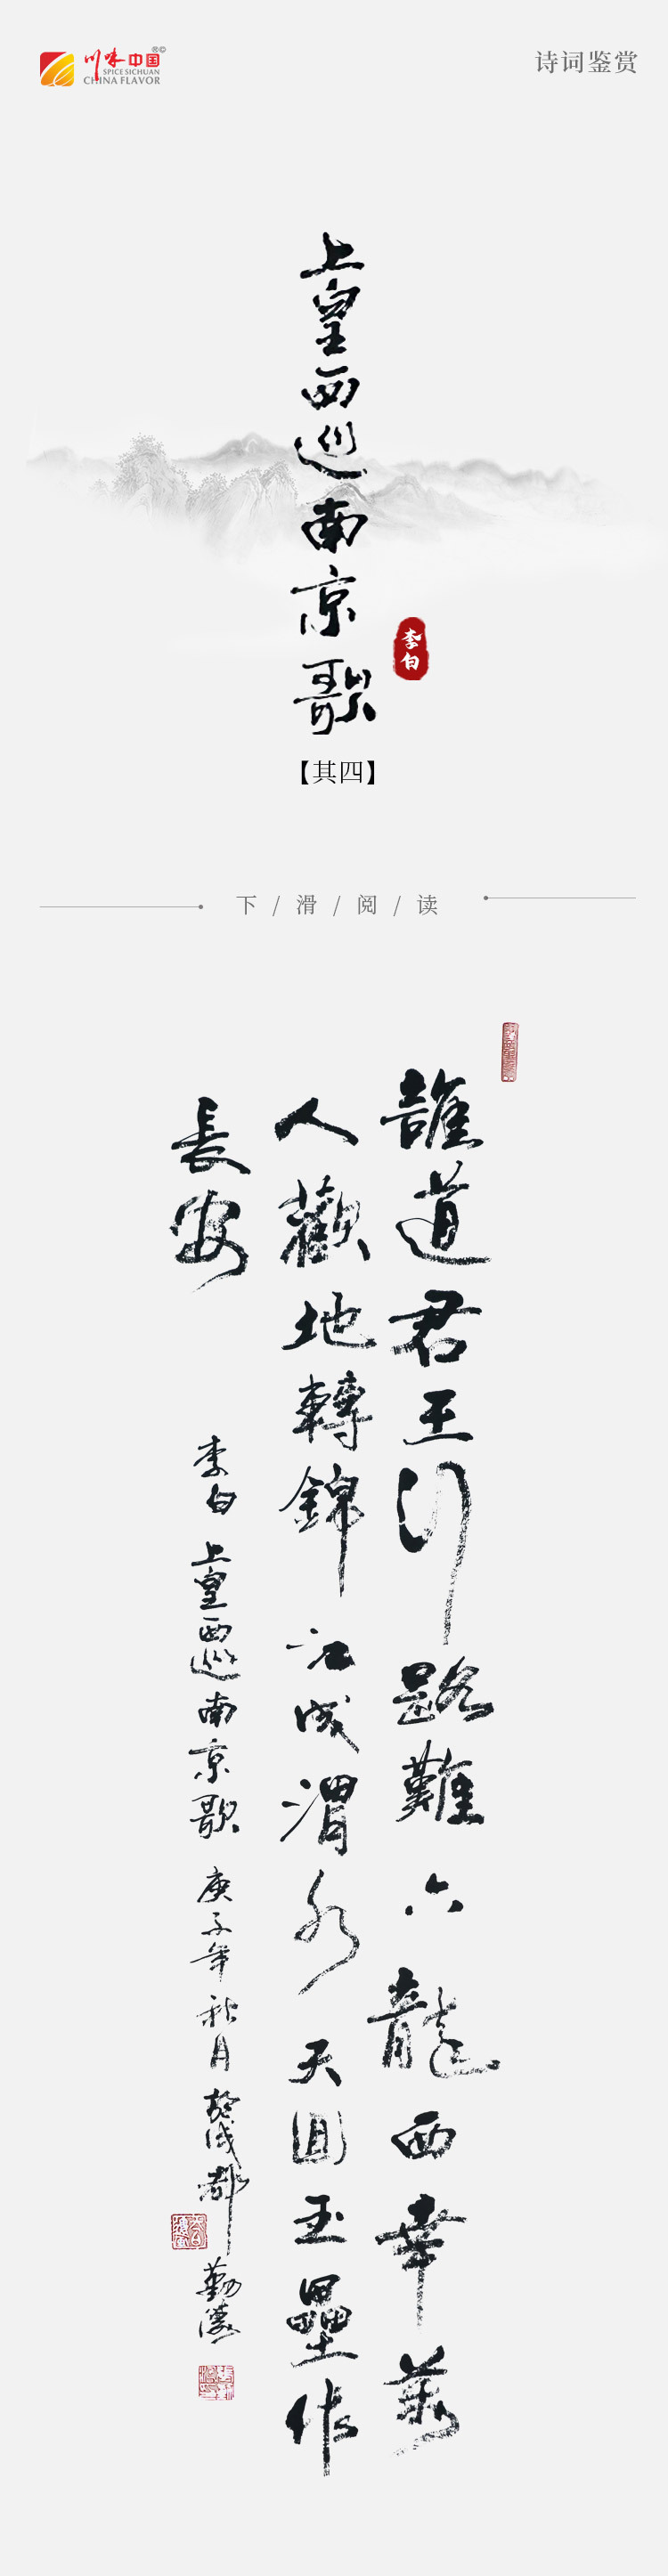 川味中国®©
SPICE SICHUAN
CHINA FLAVOR
诗词鉴赏
上皇西巡南京歌
李白
【其四】
下/滑/阅/读
誰道君王行路難六龍西幸萬
人歡地轉錦江成渭水天回玉壘作
長安
李白上皇西巡南京歌庚子年秋月於成都勤